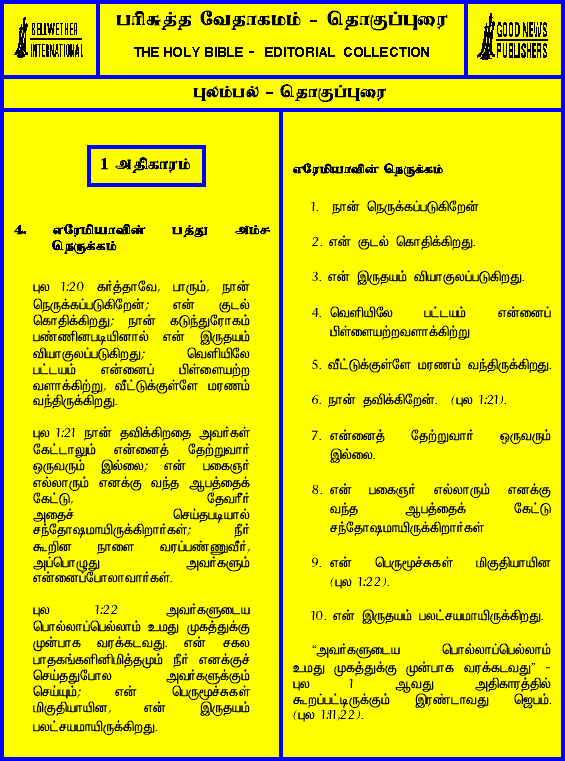 BELLWETHER
INTERNATIONAL
பரிசுத்த வேதாகமம் - தொகுப்புரை
THE HOLY BIBLE - EDITORIAL COLLECTION
GOOD NEWS
PUBLISHERS
புலம்பல் - தொகுப்புரை
1 அதிகாரம்
4. எரேமியாவின் பத்து அம்ச
நெருக்கம்
புல 1:20 கர்த்தாவே, பாரும், நான்
நெருக்கப்படுகிறேன்; என் குடல்
கொதிக்கிறது; நான் கடுந்துரோகம்
பண்ணினபடியினால் என் இருதயம்
வியாகுலப்படுகிறது; வெளியிலே
பட்டயம் என்னைப் பிள்ளையற்ற
வளாக்கிற்று, வீட்டுக்குள்ளே மரணம்
வந்திருக்கிறது.
புல 1:21 நான் தவிக்கிறதை அவர்கள்
கேட்டாலும் என்னைத் தேற்றுவார்
ஒருவரும் இல்லை; என் பகைஞர்
எல்லாரும் எனக்கு வந்த ஆபத்தைக்
கேட்டு, தேவரீர்
அதைச் செய்தபடியால்
சந்தோஷமாயிருக்கிறார்கள்; நீர்
கூறின நாளை வரப்பண்ணுவீர்,
அப்பொழுது அவர்களும்
என்னைப்போலாவார்கள்.
புல 1:22 அவர்களுடைய
பொல்லாப்பெல்லாம் உமது முகத்துக்கு
முன்பாக வரக்கடவது. என் சகல
பாதகங்களினிமித்தமும் நீர் எனக்குச்
செய்ததுபோல அவர்களுக்கும்
செய்யும்; என் பெருமூச்சுகள்
மிகுதியாயின, என் இருதயம்
பலட்சயமாயிருக்கிறது.
எரேமியாவின் நெருக்கம்
1. நான் நெருக்கப்படுகிறேன்
2. என் குடல் கொதிக்கிறது.
3. என் இருதயம் வியாகுலப்படுகிறது.
4. வெளியிலே பட்டயம் என்னைப்
பிள்ளையற்றவளாக்கிற்று
5. வீட்டுக்குள்ளே மரணம் வந்திருக்கிறது.
6. நான் தவிக்கிறேன். (புல 1:21).
7. என்னைத் தேற்றுவார் ஒருவரும்
இல்லை.
8. என் பகைஞர் எல்லாரும் எனக்கு
வந்த ஆபத்தைக் கேட்டு
சந்தோஷமாயிருக்கிறார்கள்
9. என் பெருமூச்சுகள் மிகுதியாயின
(புல 1:22).
10. என் இருதயம் பலட்சயமாயிருக்கிறது.
“அவர்களுடைய பொல்லாப்பெல்லாம்
உமது முகத்துக்கு முன்பாக வரக்கடவது” -
புல 1 ஆவது அதிகாரத்தில்
கூறப்பட்டிருக்கும் இரண்டாவது ஜெபம்.
(புல 1:11,22).